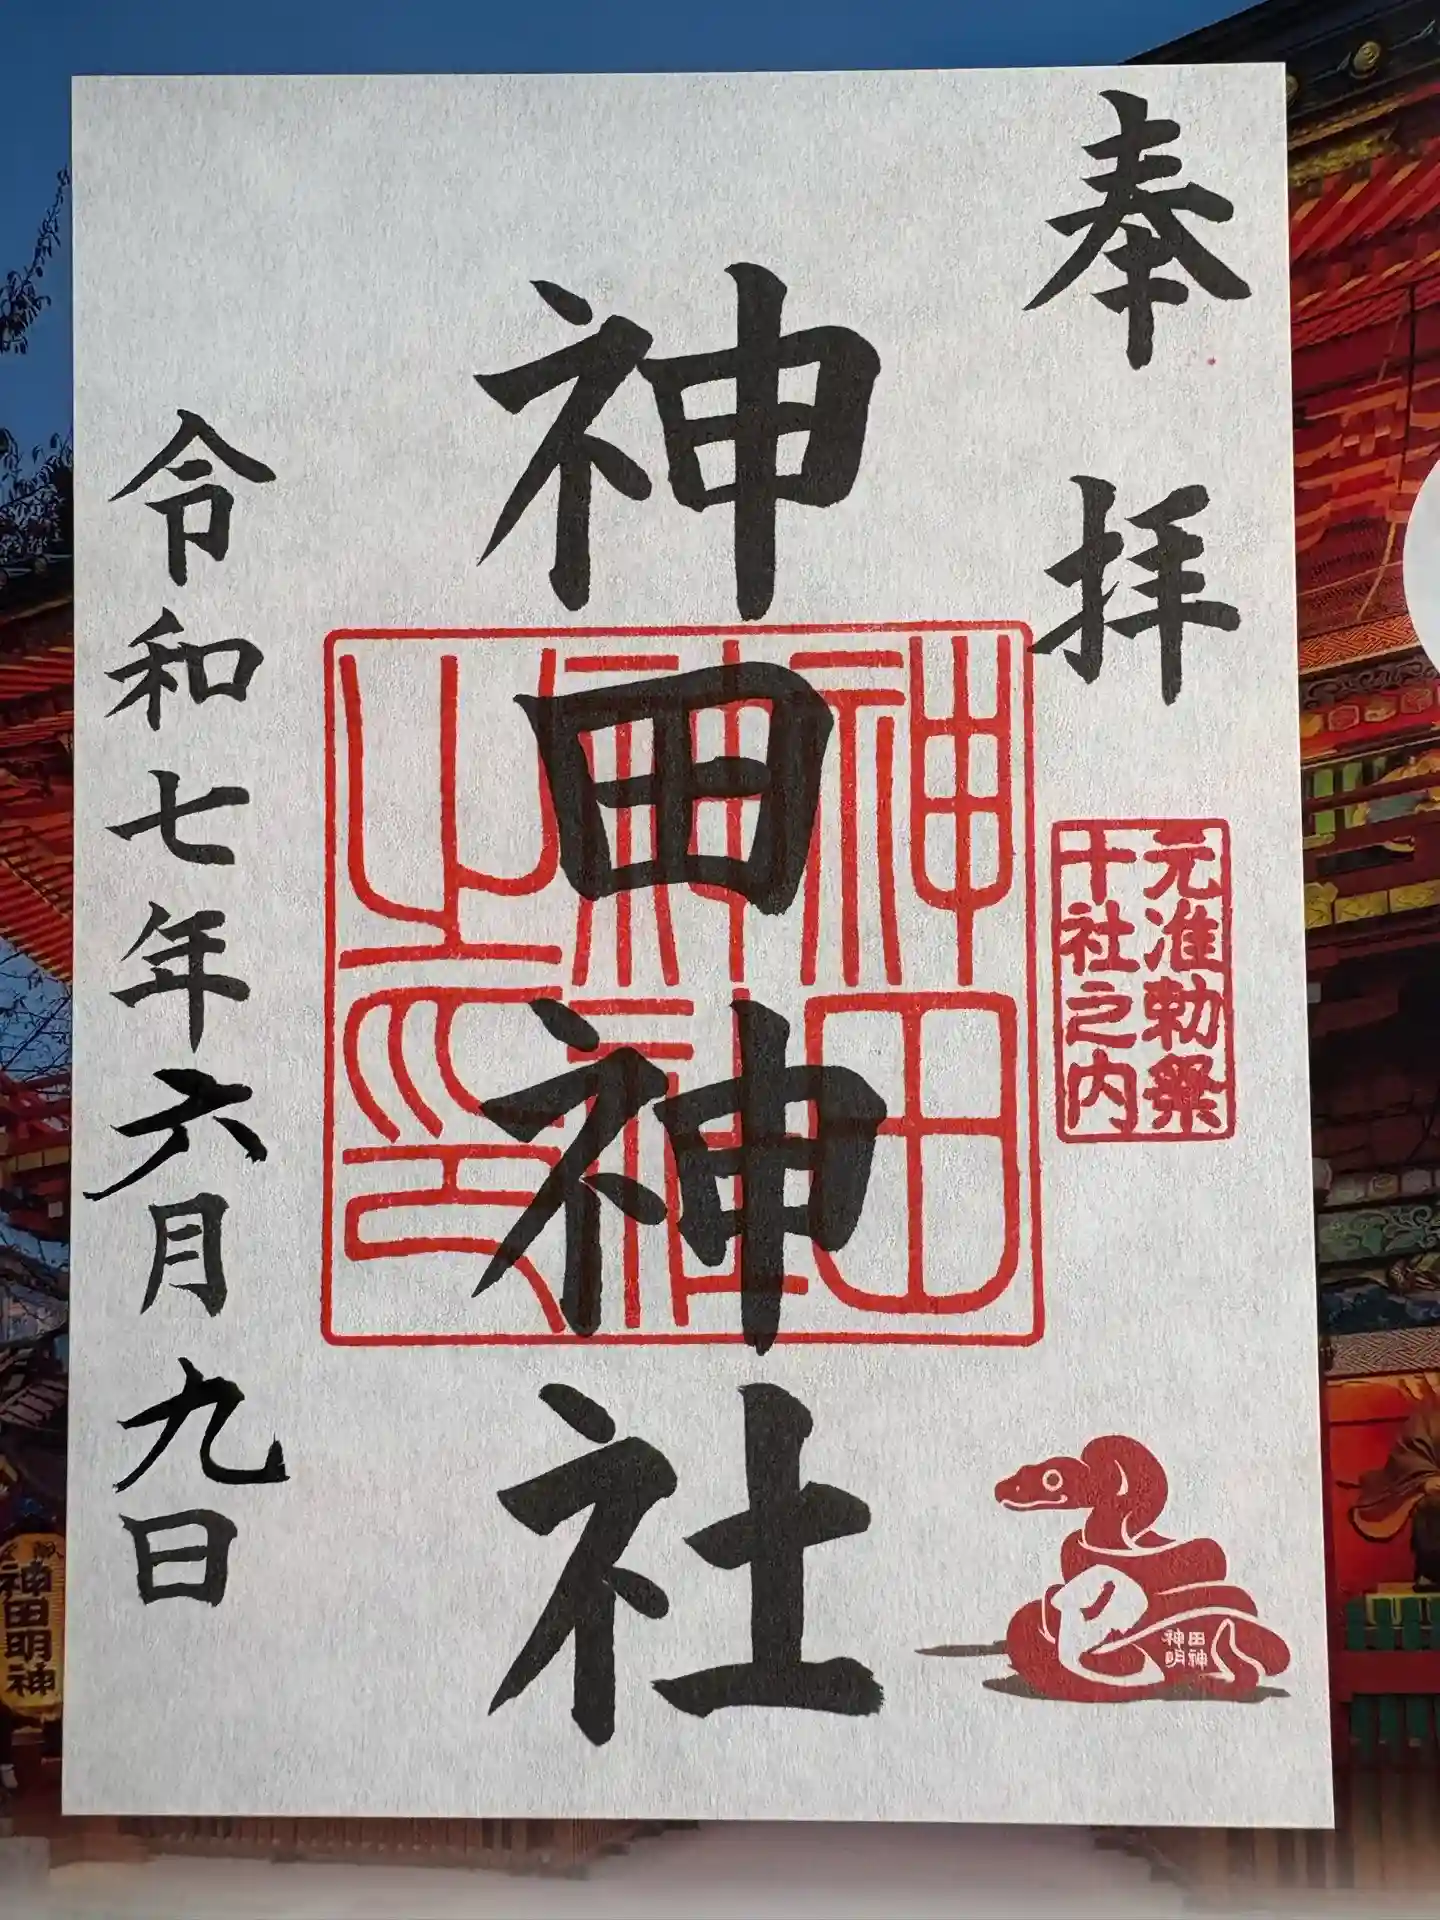 奉拝
元准勅祭
十社之内
神田神社
神田
神社
之印
令和七年六月九日
巳
神田
明神
神田明神